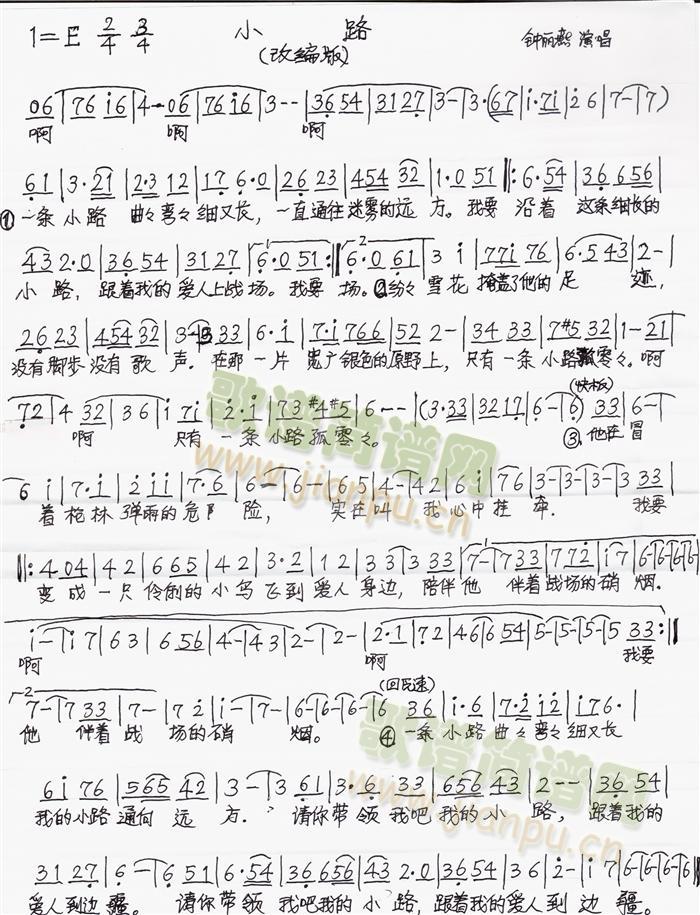 1=E 2/4 3/4 小 路 钟丽燕 演唱
(改编版)
06|76 i6|4-06|76 i6|3--|36 54|31 27|3-|3·(67|i·7i|2 6|7-|7)
啊 啊 啊
61|3·21|2·3 12|17 6·0|26 23|454 32|1·0 51|:6·54|36 656|
①一条 小路 曲々弯々细又长，一直通往迷雾的远 方。我要 沿着 这条细长的
43 2·0|36 54|31 27|6·0 51:|6·0 61|3 i|77i 76|6·5 43|2-|
小 路，跟着我的爱人上战场。我要 场。②纷々 雪花 掩盖了他的足 迹，
26 23|454 32|3-3 33|6·i|7·i 766|52 2-|34 33|7#5 32|1-21|
没有脚步没有歌 声．在那 一片 宽广银色的原野上，只有 一条 小路孤零々。啊
(快板)
72|4 32|3 6|i 7i|2·i|73 #4#5|6--|(3·33|32 17|6-|6) 33|6-|
啊 只有 一条 小路孤零々。 ③他在冒
6 i|7·i|2 i i|7·6|6-|6-|6 5|4-|4 2|6 i|7 6|3-|3-|3-|3 33|
着枪林弹雨的危 险， 实在叫 我心中挂 牵． 我要
|:4·04|4 2|6 65|4 2|3·2|1 2|3 3|3 33|7-|7 33|77 2|i 7|6-|6-|6-|6-|
变成一只 伶俐的小鸟飞到爱人 身边，陪伴他 伴着战场的硝 烟．
i-|i 7|6 3|6 56|4-|4 3|2-|2-|2·1|7 2|4 6|6 54|5-|5-|5-|5 33:|
啊 啊 我要
(回原速)
7-|7 33|7-|7 2|i-|7-|6-|6-|6-|6 36|i·6|7·2 i2|i76·|
他 伴着战 场的硝 烟。 ④一条 小路曲々弯々细又长
6i 76|565 42|3-|3 61|3·6 33|656 43|2--|36 54|
我的小路通向 远 方． 请你带 领 我吧 我的小 路，跟着我的
31 27|6-|6 51|6·54|36 656|43 2·0|36 54|3 6|2-|i 7|6-|6-|6-|6|
爱人到边 疆。 请你带领 我吧我的 小 路，跟着我的爱人到 边 疆。
歌谱简谱网
www.jianpu.cn
歌谱简谱网
www.jianpu.cn